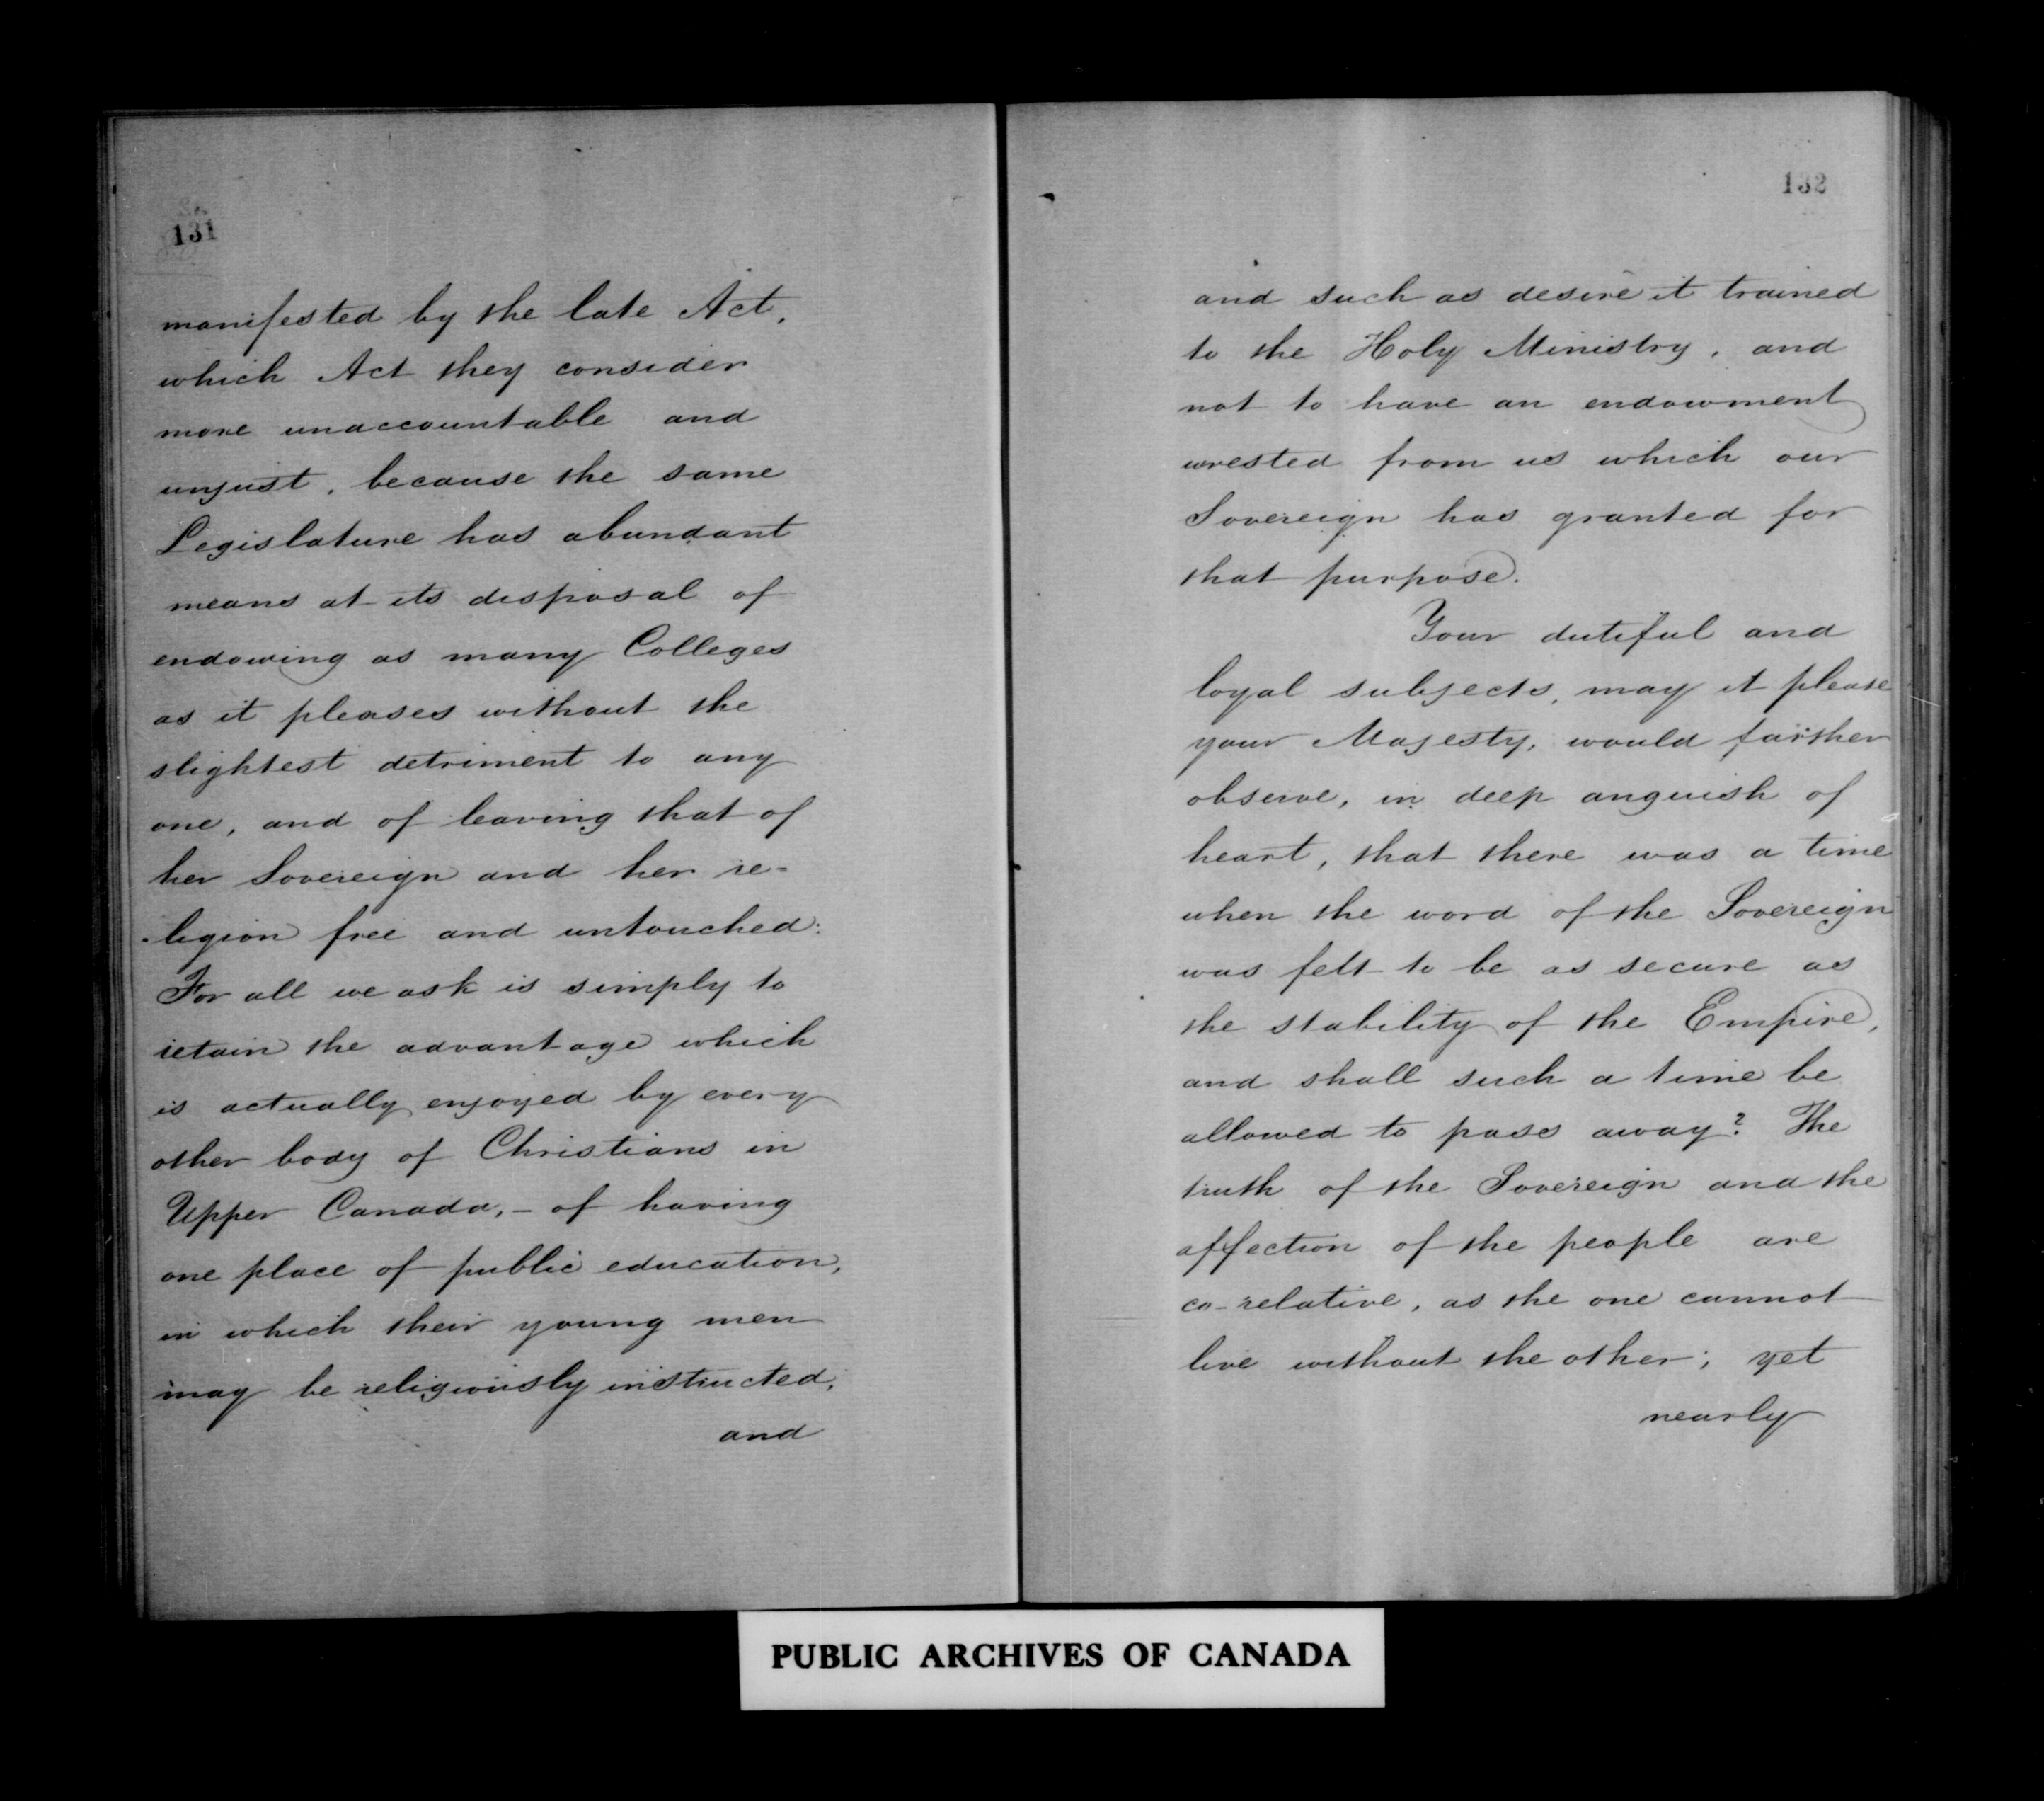 131
manifested by the late Act,
which Act they consider
more unaccountable and
unjust, because the same
Legislature has abundant
means at its disposal of
endowing as many Colleges
as it pleases without the
slightest detriment to any
one, and of leaving that of
her Sovereign and her re-
-ligion free and untouched:
For all we ask is simply to
retain the advantage which
is actually enjoyed by every
other body of Christians in
Upper Canada, - of having
one place of public education,
in which their young men
may be religiously instructed,
and
132
and such as desire it trained
to the Holy Ministry, and
not to have an endowment
wrested from us which our
Sovereign has granted for
that purpose.
Your dutiful and
loyal subjects, may it please
your Majesty, would farther
observe, in deep anguish of
heart, that there was a time
when the word of the Sovereign
was felt to be as secure as
the stability of the Empire,
and shall such a time be
allowed to pass away? The
truth of the Sovereign and the
affection of the people are
co-relative, as the one cannot
live without the other; yet
nearly
PUBLIC ARCHIVES OF CANADA